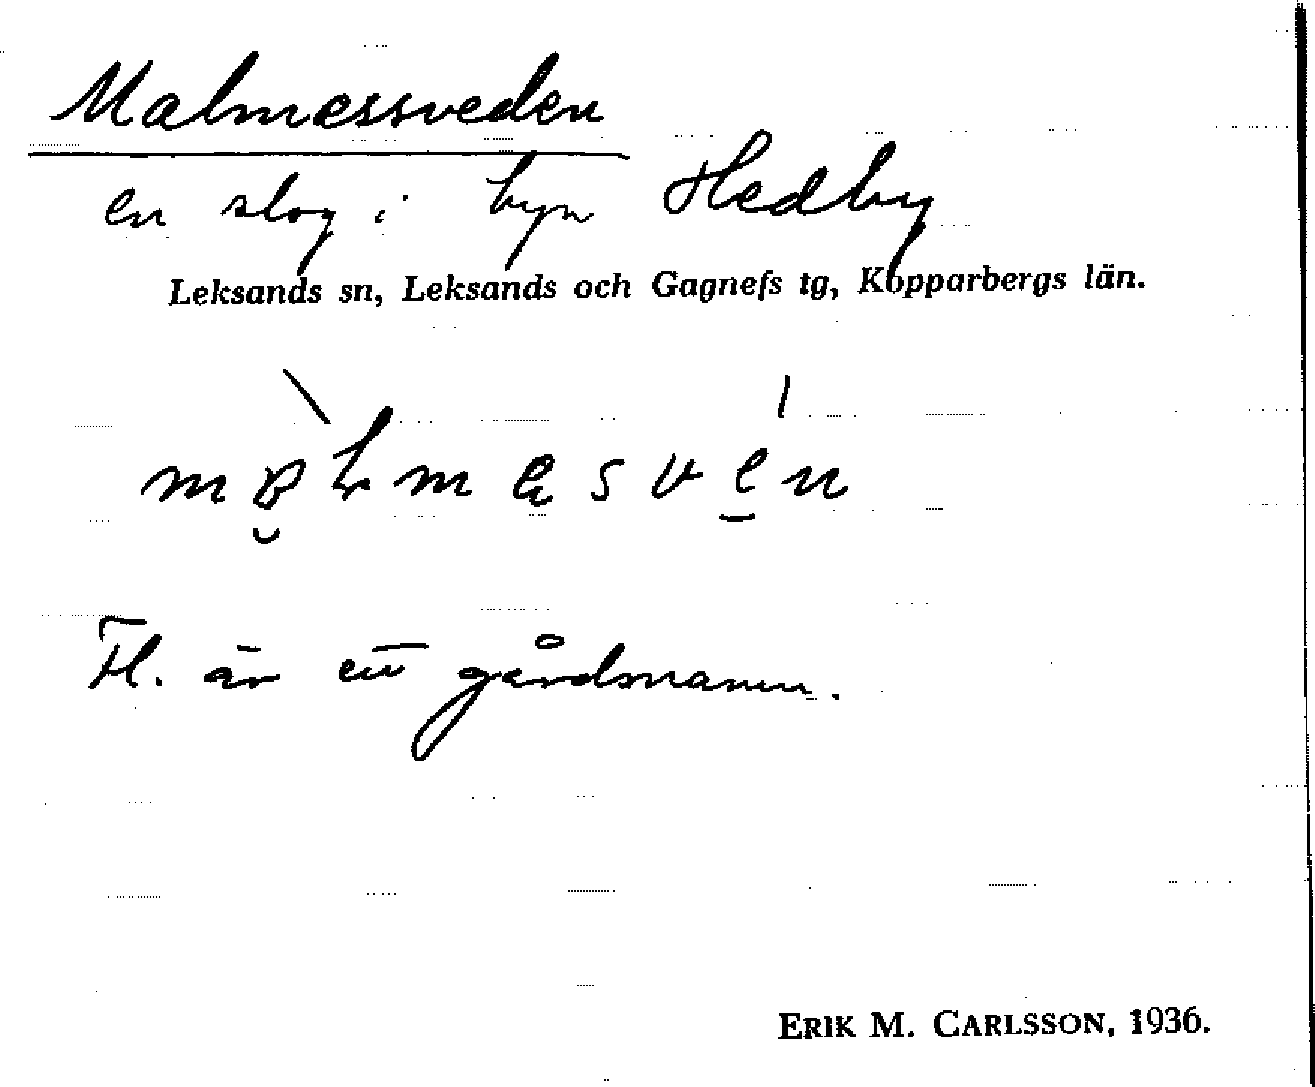 Malmessveden
en slog i byn Hedby
Leksands sn, Leksands och Gagnefs tg, Kopparbergs län.
Fl. är ett gårdsnamn.
ERIK M. CARLSSON, 1936.